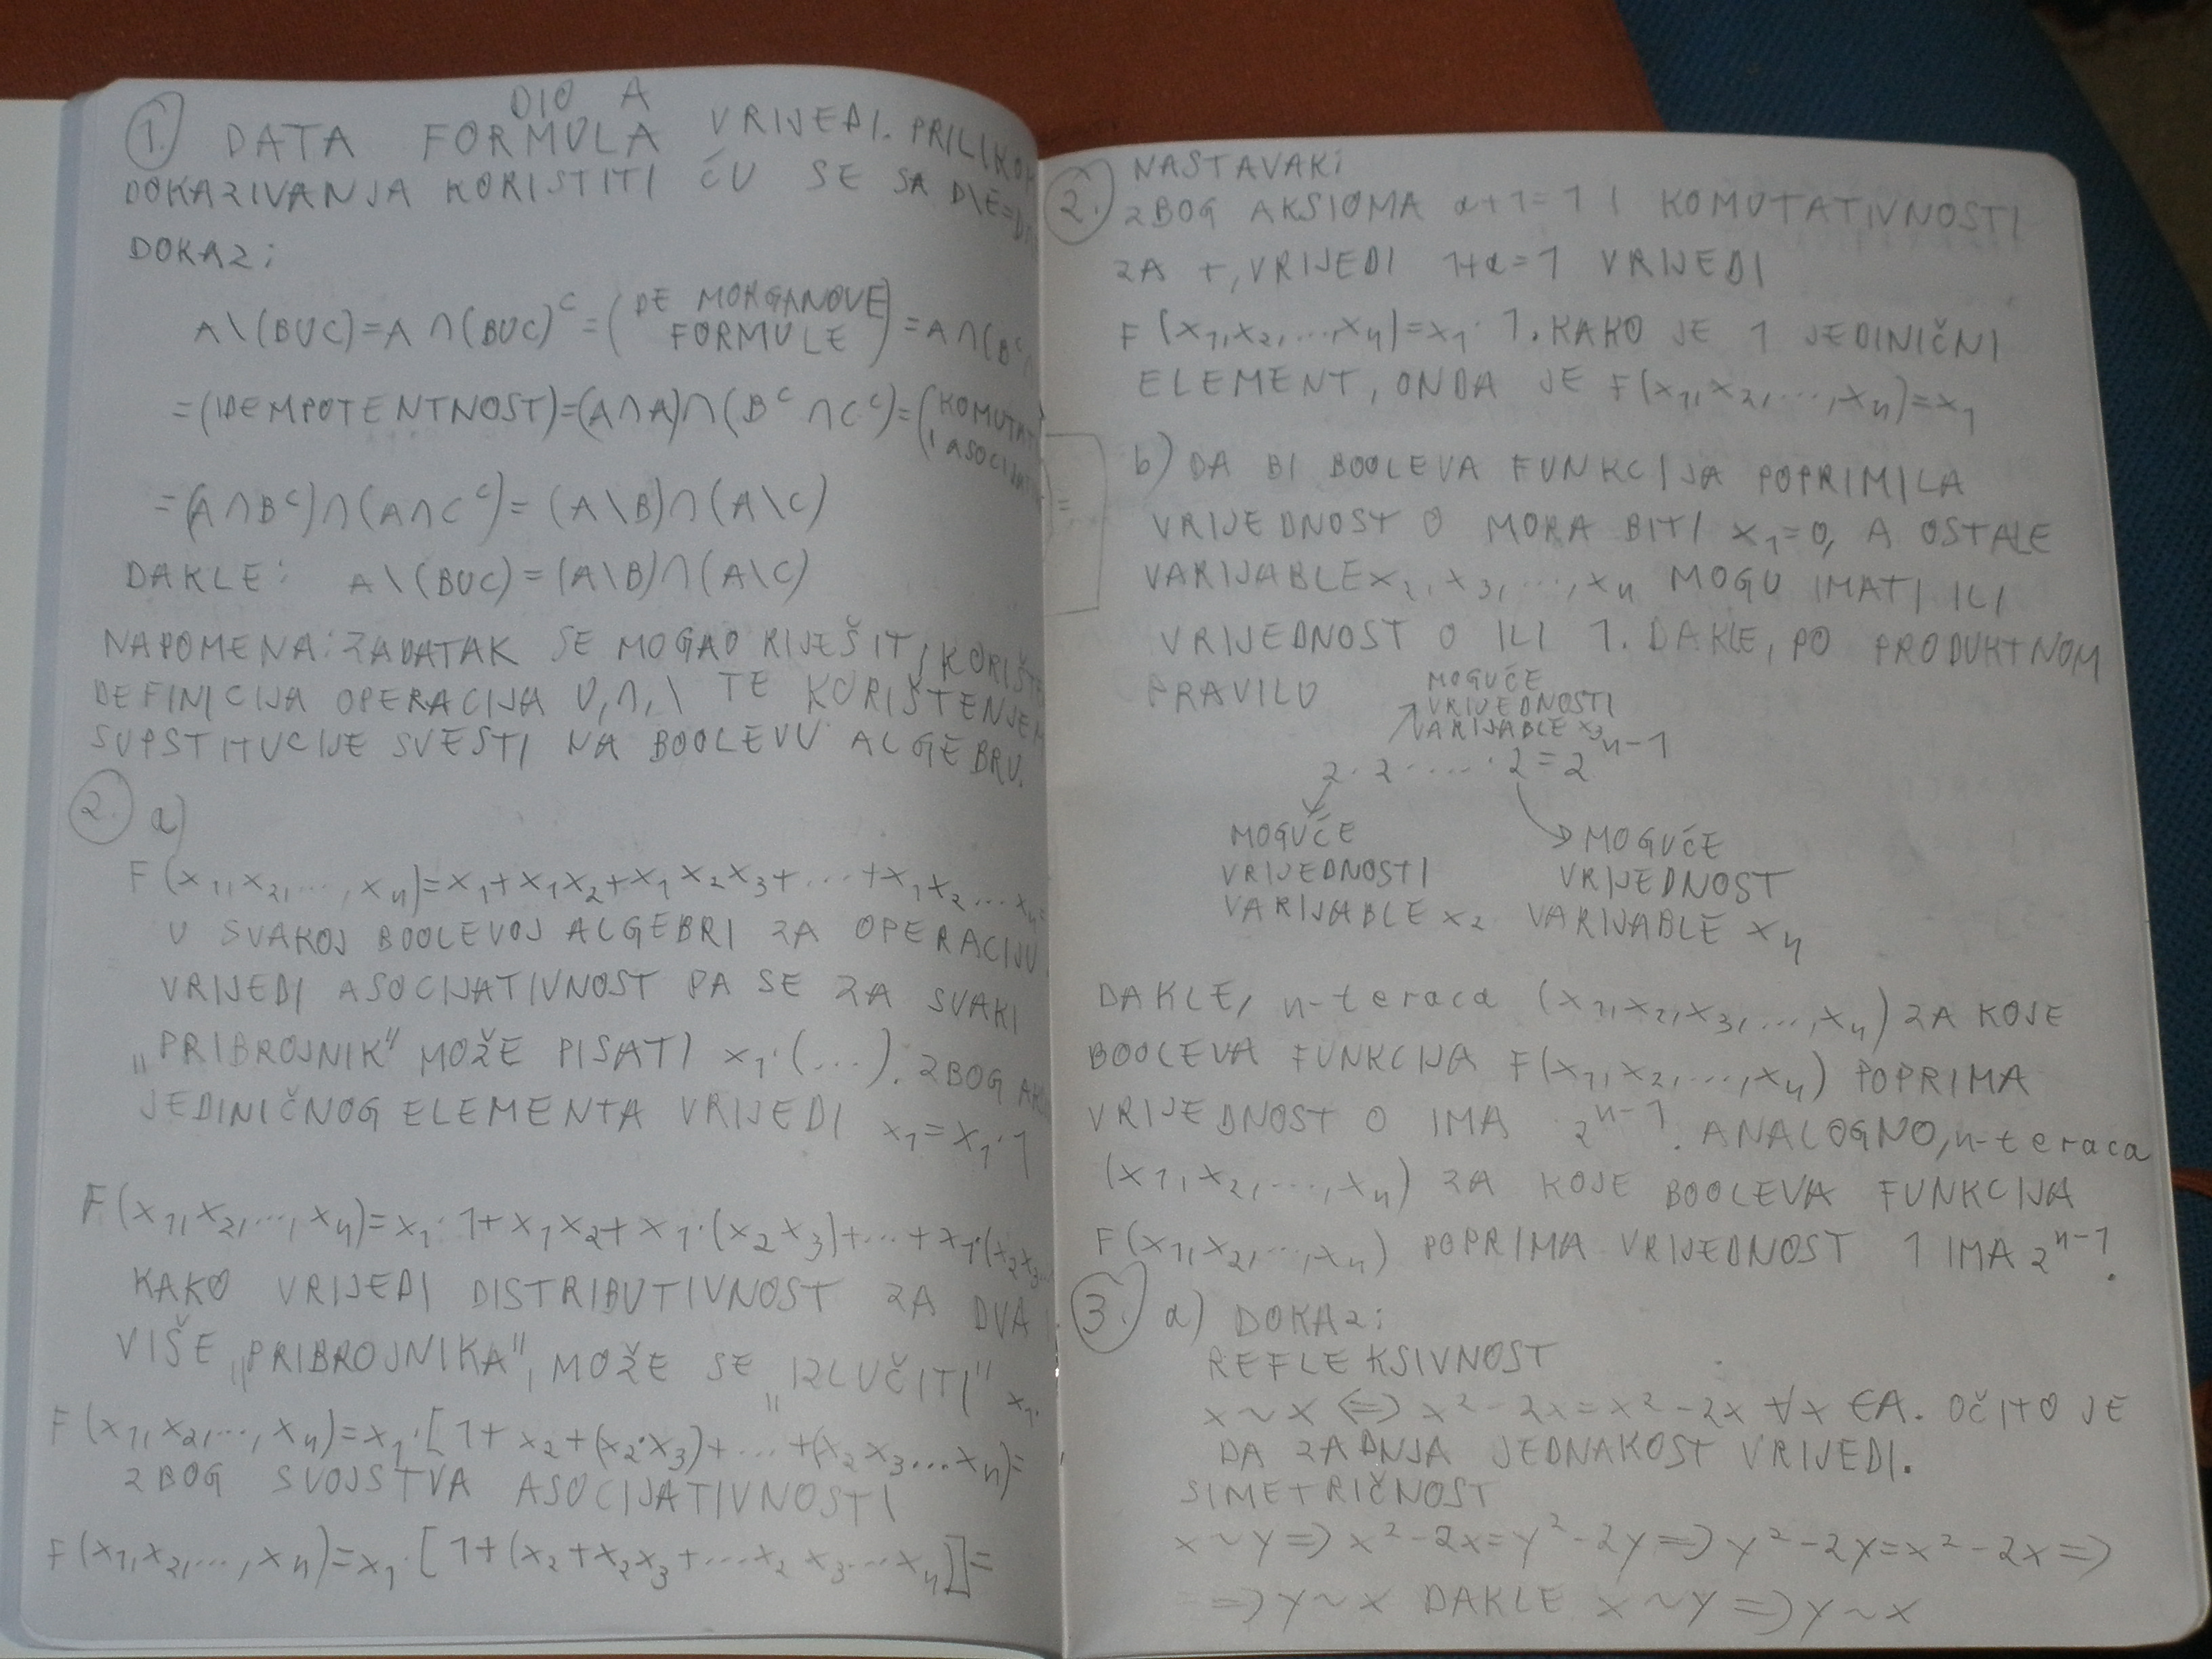 DIO A
1. DATA FORMULA VRIJEDI. PRILIKOM
DOKAZIVANJA KORISTITI ĆU SE SA D\E=D∩
DOKAZ:
A\(B∪C)=A∩(B∪C)ᶜ=(DE MORGANOVE FORMULE)=A∩(Bᶜ∩
=(IDEMPOTENTNOST)=(A∩A)∩(Bᶜ∩Cᶜ)=(KOMUTAT
I ASOCIJATI
=(A∩Bᶜ)∩(A∩Cᶜ)=(A\B)∩(A\C)
DAKLE: A\(B∪C)=(A\B)∩(A\C)
NAPOMENA: ZADATAK SE MOGAO RIJEŠITI KORIŠTE
DEFINICIJA OPERACIJA ∪,∩,\ TE KORIŠTENJEM
SUPSTITUCIJE SVESTI NA BOOLEVU ALGEBRU.
2. a)
F(x₁,x₂,...,xₙ)=x₁+x₁x₂+x₁x₂x₃+...+x₁x₂...xₙ=
U SVAKOJ BOOLEVOJ ALGEBRI ZA OPERACIJU
VRIJEDI ASOCIJATIVNOST PA SE ZA SVAKI
„PRIBROJNIK" MOŽE PISATI x₁·(...). ZBOG AK
JEDINIČNOG ELEMENTA VRIJEDI x₁=x₁·1
F(x₁,x₂,...,xₙ)=x₁·1+x₁x₂+x₁·(x₂x₃)+...+x₁·(x₂x₃...
KAKO VRIJEDI DISTRIBUTIVNOST ZA DVA
VIŠE „PRIBROJNIKA", MOŽE SE „IZLUČITI" x₁.
F(x₁,x₂,...,xₙ)=x₁·[1+x₂+(x₂·x₃)+...+(x₂x₃...xₙ)=
ZBOG SVOJSTVA ASOCIJATIVNOSTI
F(x₁,x₂,...,xₙ)=x₁·[1+(x₂+x₂x₃+...x₂x₃...xₙ)]=
2. NASTAVAK:
ZBOG AKSIOMA a+1=1 I KOMUTATIVNOSTI
ZA +, VRIJEDI 1+a=1 VRIJEDI
F(x₁,x₂,...,xₙ)=x₁·1. KAKO JE 1 JEDINIČNI
ELEMENT, ONDA JE F(x₁,x₂,...,xₙ)=x₁
b) DA BI BOOLEVA FUNKCIJA POPRIMILA
VRIJEDNOST 0 MORA BITI x₁=0, A OSTALE
VARIJABLE x₂,x₃,...,xₙ MOGU IMATI ILI
VRIJEDNOST 0 ILI 1. DAKLE, PO PRODUKTNOM
PRAVILU
MOGUĆE
VRIJEDNOSTI
VARIJABLE x₃
2·2·...·2=2ⁿ⁻¹
MOGUĆE
VRIJEDNOSTI
VARIJABLE x₂
MOGUĆE
VRIJEDNOST
VARIJABLE xₙ
DAKLE, n-teraca (x₁,x₂,x₃,...,xₙ) ZA KOJE
BOOLEVA FUNKCIJA F(x₁,x₂,...,xₙ) POPRIMA
VRIJEDNOST 0 IMA 2ⁿ⁻¹. ANALOGNO, n-teraca
(x₁,x₂,...,xₙ) ZA KOJE BOOLEVA FUNKCIJA
F(x₁,x₂,...,xₙ) POPRIMA VRIJEDNOST 1 IMA 2ⁿ⁻¹.
3. a) DOKAZ:
REFLEKSIVNOST
x~x ⇔ x²-2x=x²-2x ∀x∈A. OČITO JE
DA ZADNJA JEDNAKOST VRIJEDI.
SIMETRIČNOST
x~y⇒x²-2x=y²-2y⇒y²-2y=x²-2x⇒
⇒y~x DAKLE x~y⇒y~x